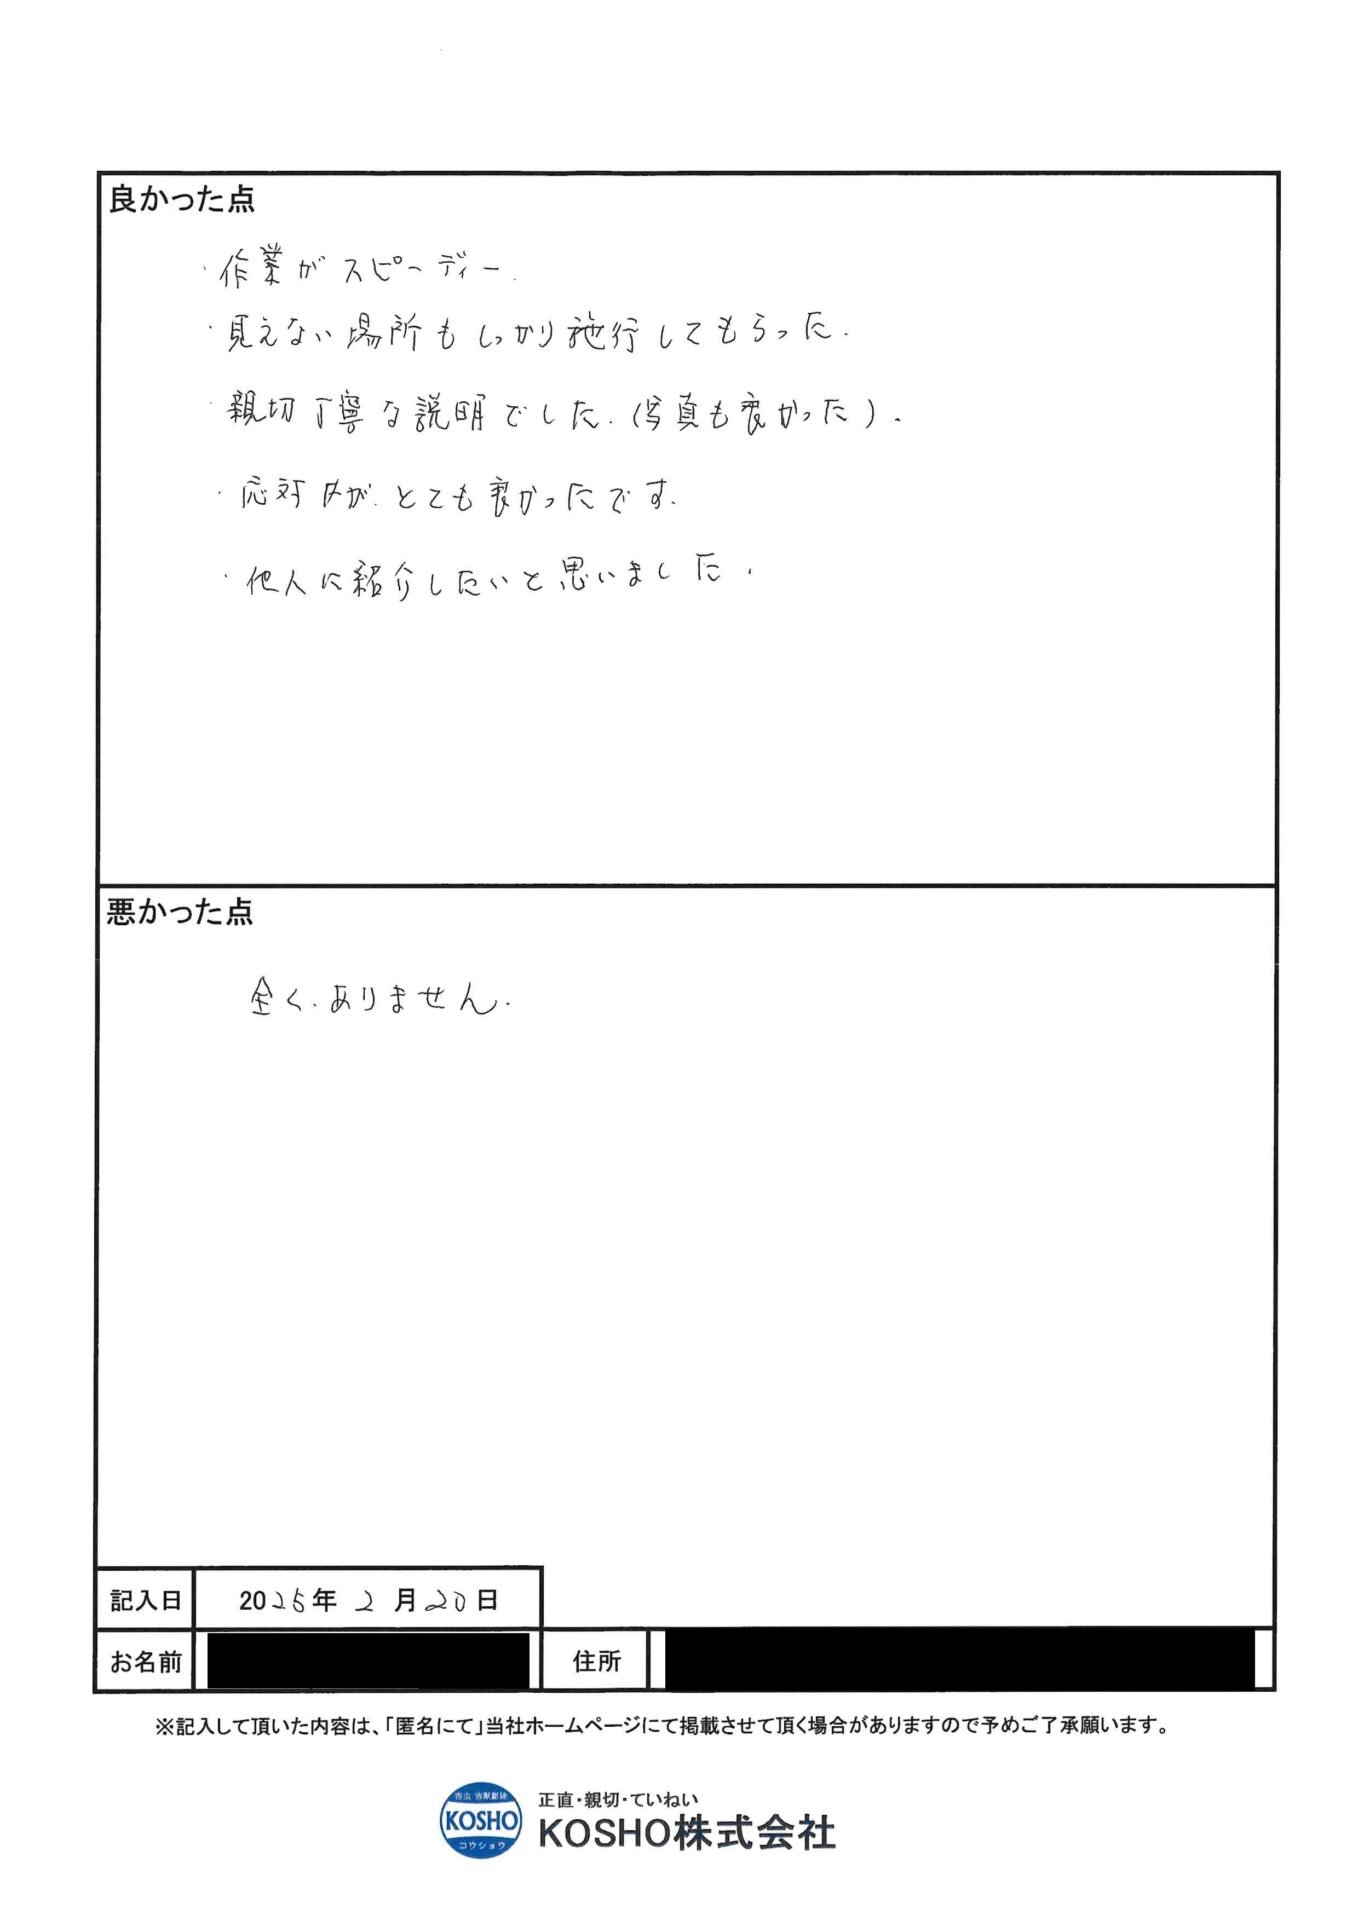 良かった点
・作業がスピーディー.
・見えない場所もしっかり施行してもらった.
・親切丁寧な説明でした.(写真も良かった).
・応対が.とても良かったです.
・他人に紹介したいと思いました.
悪かった点
全く.ありません.
記入日 2025年 2月20日
お名前 住所
※記入して頂いた内容は、「匿名にて」当社ホームページにて掲載させて頂く場合がありますので予めご了承願います。
害虫 害獣駆除
KOSHO
コウショウ
正直・親切・ていねい
KOSHO株式会社